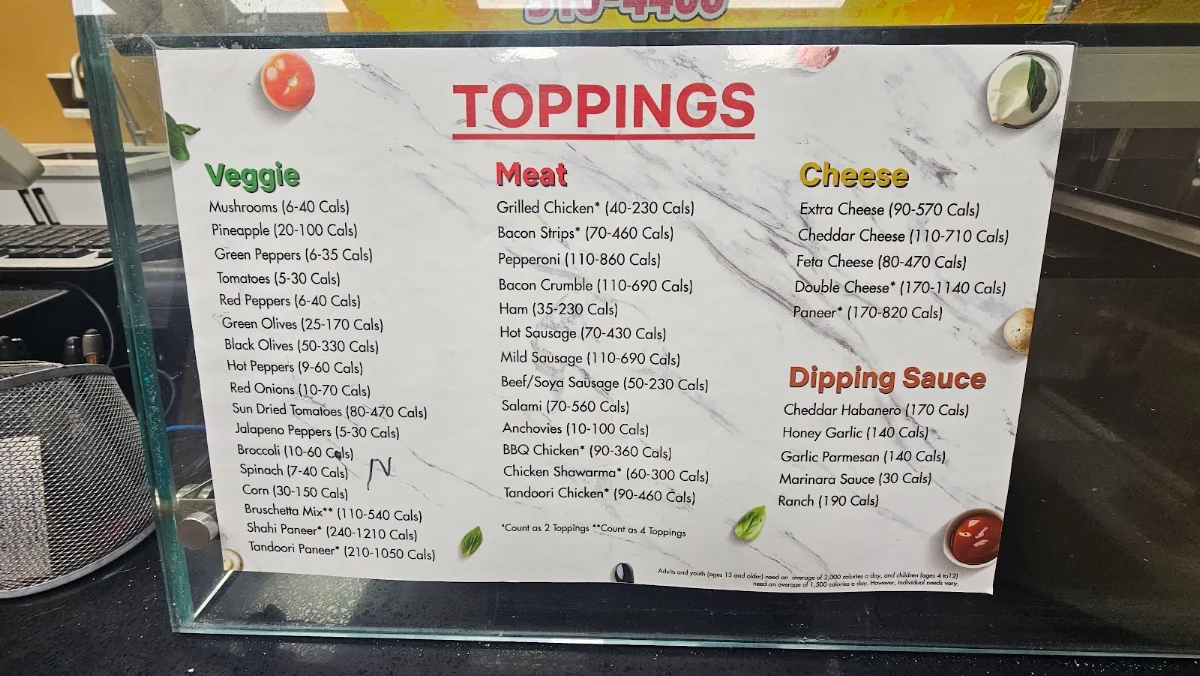 TOPPINGS
Veggie
Mushrooms (6-40 Cals)
Pineapple (20-100 Cals)
Green Peppers (6-35 Cals)
Tomatoes (5-30 Cals)
Red Peppers (6-40 Cals)
Green Olives (25-170 Cals)
Black Olives (50-330 Cals)
Hot Peppers (9-60 Cals)
Red Onions (10-70 Cals)
Sun Dried Tomatoes (80-470 Cals)
Jalapeno Peppers (5-30 Cals)
Broccoli (10-60 Cals)
Spinach (7-40 Cals)
N
Corn (30-150 Cals)
Bruschetta Mix** (110-540 Cals)
Shahi Paneer* (240-1210 Cals)
Tandoori Paneer* (210-1050 Cals)
Meat
Grilled Chicken* (40-230 Cals)
Bacon Strips* (70-460 Cals)
Pepperoni (110-860 Cals)
Bacon Crumble (110-690 Cals)
Ham (35-230 Cals)
Hot Sausage (70-430 Cals)
Mild Sausage (110-690 Cals)
Beef/Soya Sausage (50-230 Cals)
Salami (70-560 Cals)
Anchovies (10-100 Cals)
BBQ Chicken* (90-360 Cals)
Chicken Shawarma* (60-300 Cals)
Tandoori Chicken* (90-460 Cals)
*Count as 2 Toppings **Count as 4 Toppings
Cheese
Extra Cheese (90-570 Cals)
Cheddar Cheese (110-710 Cals)
Feta Cheese (80-470 Cals)
Double Cheese* (170-1140 Cals)
Paneer* (170-820 Cals)
Dipping Sauce
Cheddar Habanero (170 Cals)
Honey Garlic (140 Cals)
Garlic Parmesan (140 Cals)
Marinara Sauce (30 Cals)
Ranch (190 Cals)
Adults and youth (ages 13 and older) need an average of 2,000 calories a day, and children (ages 4 to12)
need an average of 1,500 calories a day. However, individual needs vary.